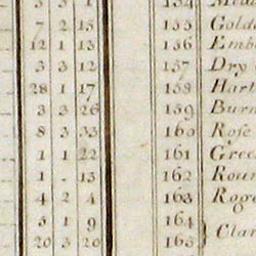 3 3 1 154
7 2 15 155 Gold
12 1 13 156 Emb
3 3 12 157 Dry
28 1 17 158 Har
3 3 26 159 Burn
8 3 33 160 Rose
1 1 22 161 Gree
1 - 13 162 Roun
4 2 4 163 Roge
5 1 9 164
20 3 20 165 } Clar